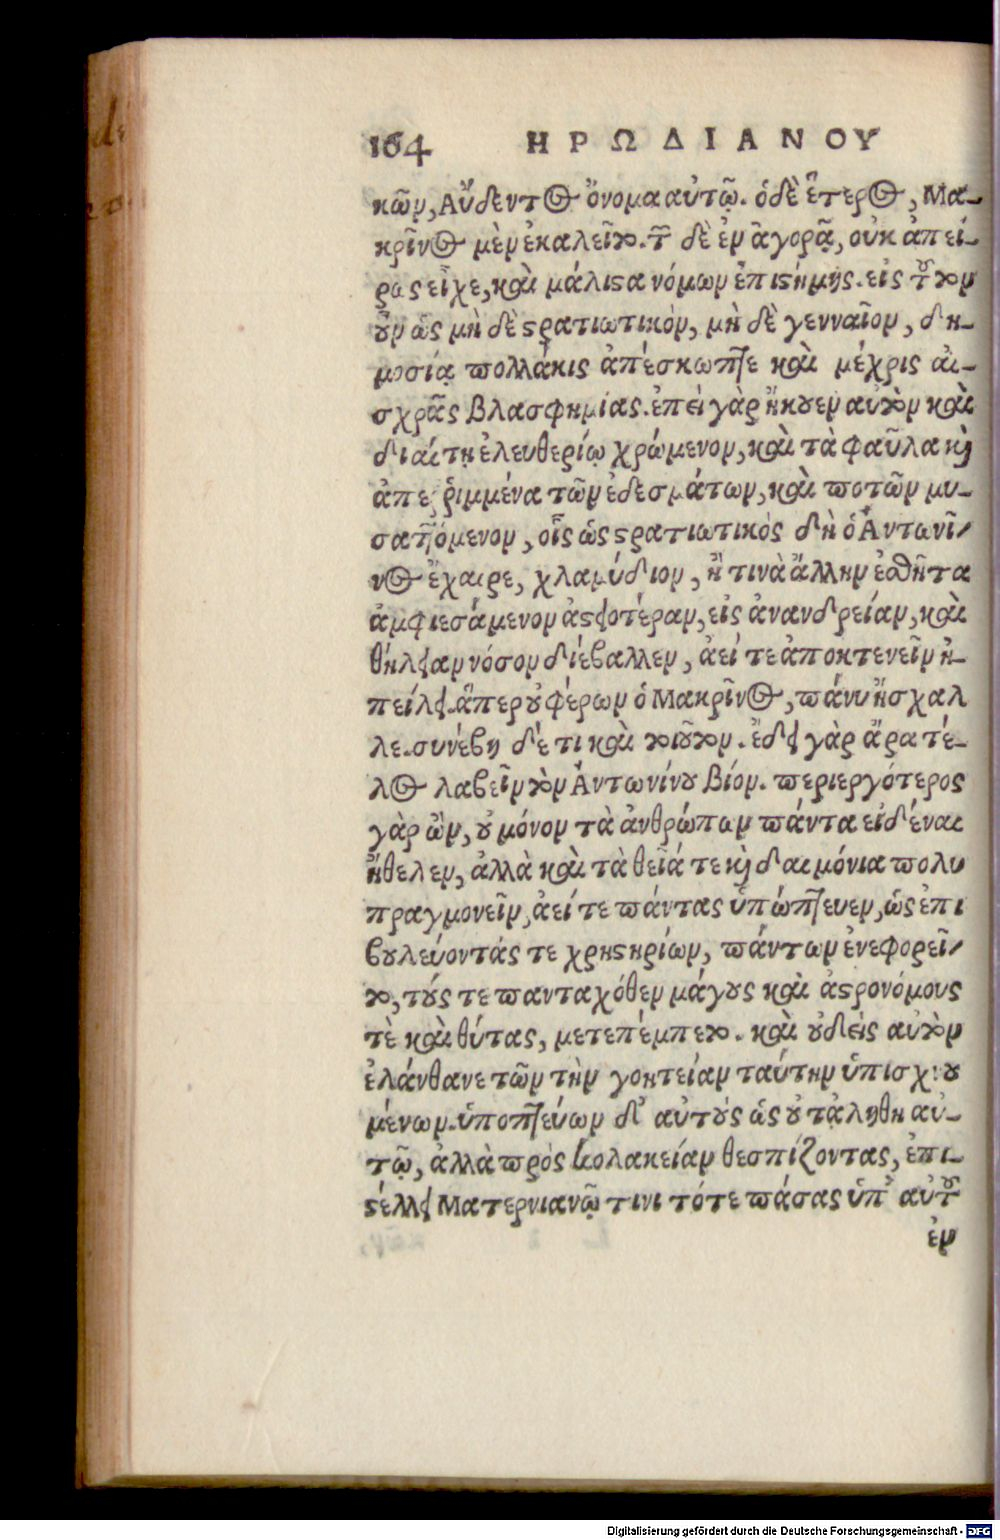 164 ΗΡΩΔΙΑΝΟΥ
κῶν, Αὔδεντος ὄνομα αὐτῷ. ὁ δὲ ἕτερος, Μα-
κρῖνος μὲν ἐκαλεῖτο. τῶν δὲ ἐν ἀγορᾷ, οὐκ ἀπεί-
ρως εἶχε, καὶ μάλιστα νόμων ἐπιστήμης. εἰς τοῦτον
οὖν ὡς μὴ δὲ στρατιωτικὸν, μὴ δὲ γενναῖον, δη-
μοσίᾳ πολλάκις ἀπέσκωπτε καὶ μέχρις αἰ-
σχρᾶς βλασφημίας. ἐπεὶ γὰρ ἤκουεν αὐτὸν καὶ
διαίτῃ ἐλευθερίῳ χρώμενον, καὶ τὰ φαῦλα καὶ
ἀπεῤῥιμμένα τῶν ἐδεσμάτων, καὶ ποτῶν μυ-
σαττόμενον, οἷς ὡς στρατιωτικὸς δὴ ὁ Ἀντωνῖ-
νος ἔχαιρε, χλαμύδιον, ἤ τινὰ ἄλλην ἐσθῆτα
ἀμφιεσάμενον ἀστειοτέραν, εἰς ἀνανδρείαν, καὶ
θήλειαν νόσον διέβαλλεν, ἀεί τε ἀποκτενεῖν ἠ-
πείλει. ἅπερ οὐ φέρων ὁ Μακρῖνος, πάνυ ἤσχαλ
λε. συνέβη δέ τι καὶ τοιοῦτον. ἔδει γὰρ ἄρα τέ-
λος λαβεῖν τὸν Ἀντωνίνου βίον. περιεργότερος
γὰρ ὢν, οὐ μόνον τὰ ἀνθρώπων πάντα εἰδέναι
ἤθελεν, ἀλλὰ καὶ τὰ θεῖά τε καὶ δαιμόνια πολυ
πραγμονεῖν, ἀεί τε πάντας ὑπώπτευεν, ὡς ἐπι
βουλεύοντάς τε χρηστηρίων, πάντων ἐνεφορεῖ-
το, τούς τε πανταχόθεν μάγους καὶ ἀστρονόμους
τὲ καὶ θύτας, μετεπέμπετο. καὶ οὐδεὶς αὐτὸν
ἐλάνθανε τῶν τὴν γοητείαν ταύτην ὑπισχνου
μένων. ὑποπτεύων δ᾽ αὐτοὺς ὡς οὐ τἀληθῆ αὐ-
τῷ, ἀλλὰ πρὸς κολακείαν θεσπίζοντας, ἐπι-
στέλλει Ματερνιανῷ τινι τότε πάσας ὑπ᾽ αὐτοῦ
ἐν
Digitalisierung gefördert durch die Deutsche Forschungsgemeinschaft - DFG